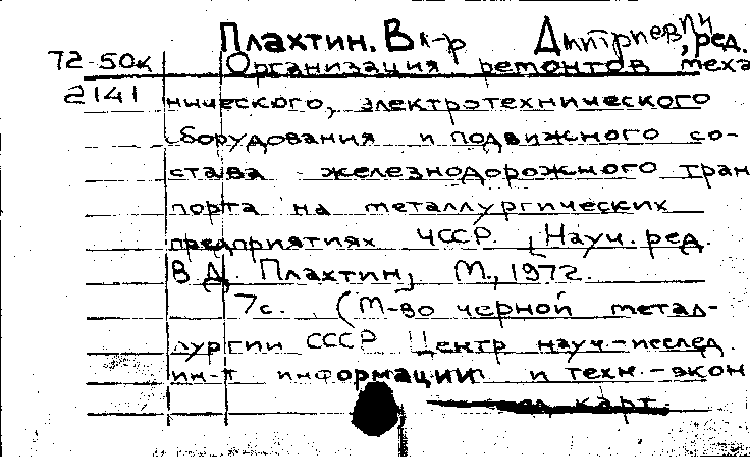 Плахтин. Вл-р Дмитриевич, ред.
72-50к Организация ремонтов меха
2141 нического, электротехнического
оборудования и подвижного со-
става железнодорожного тран
порта на металлургических
предприятиях ЧССР. [Науч. ред.
В.Д. Плахтин] М., 1972.
7с. (М-во черной метал-
лургии СССР Центр науч-исслед.
ин-т информации и техн.-экон
карт.